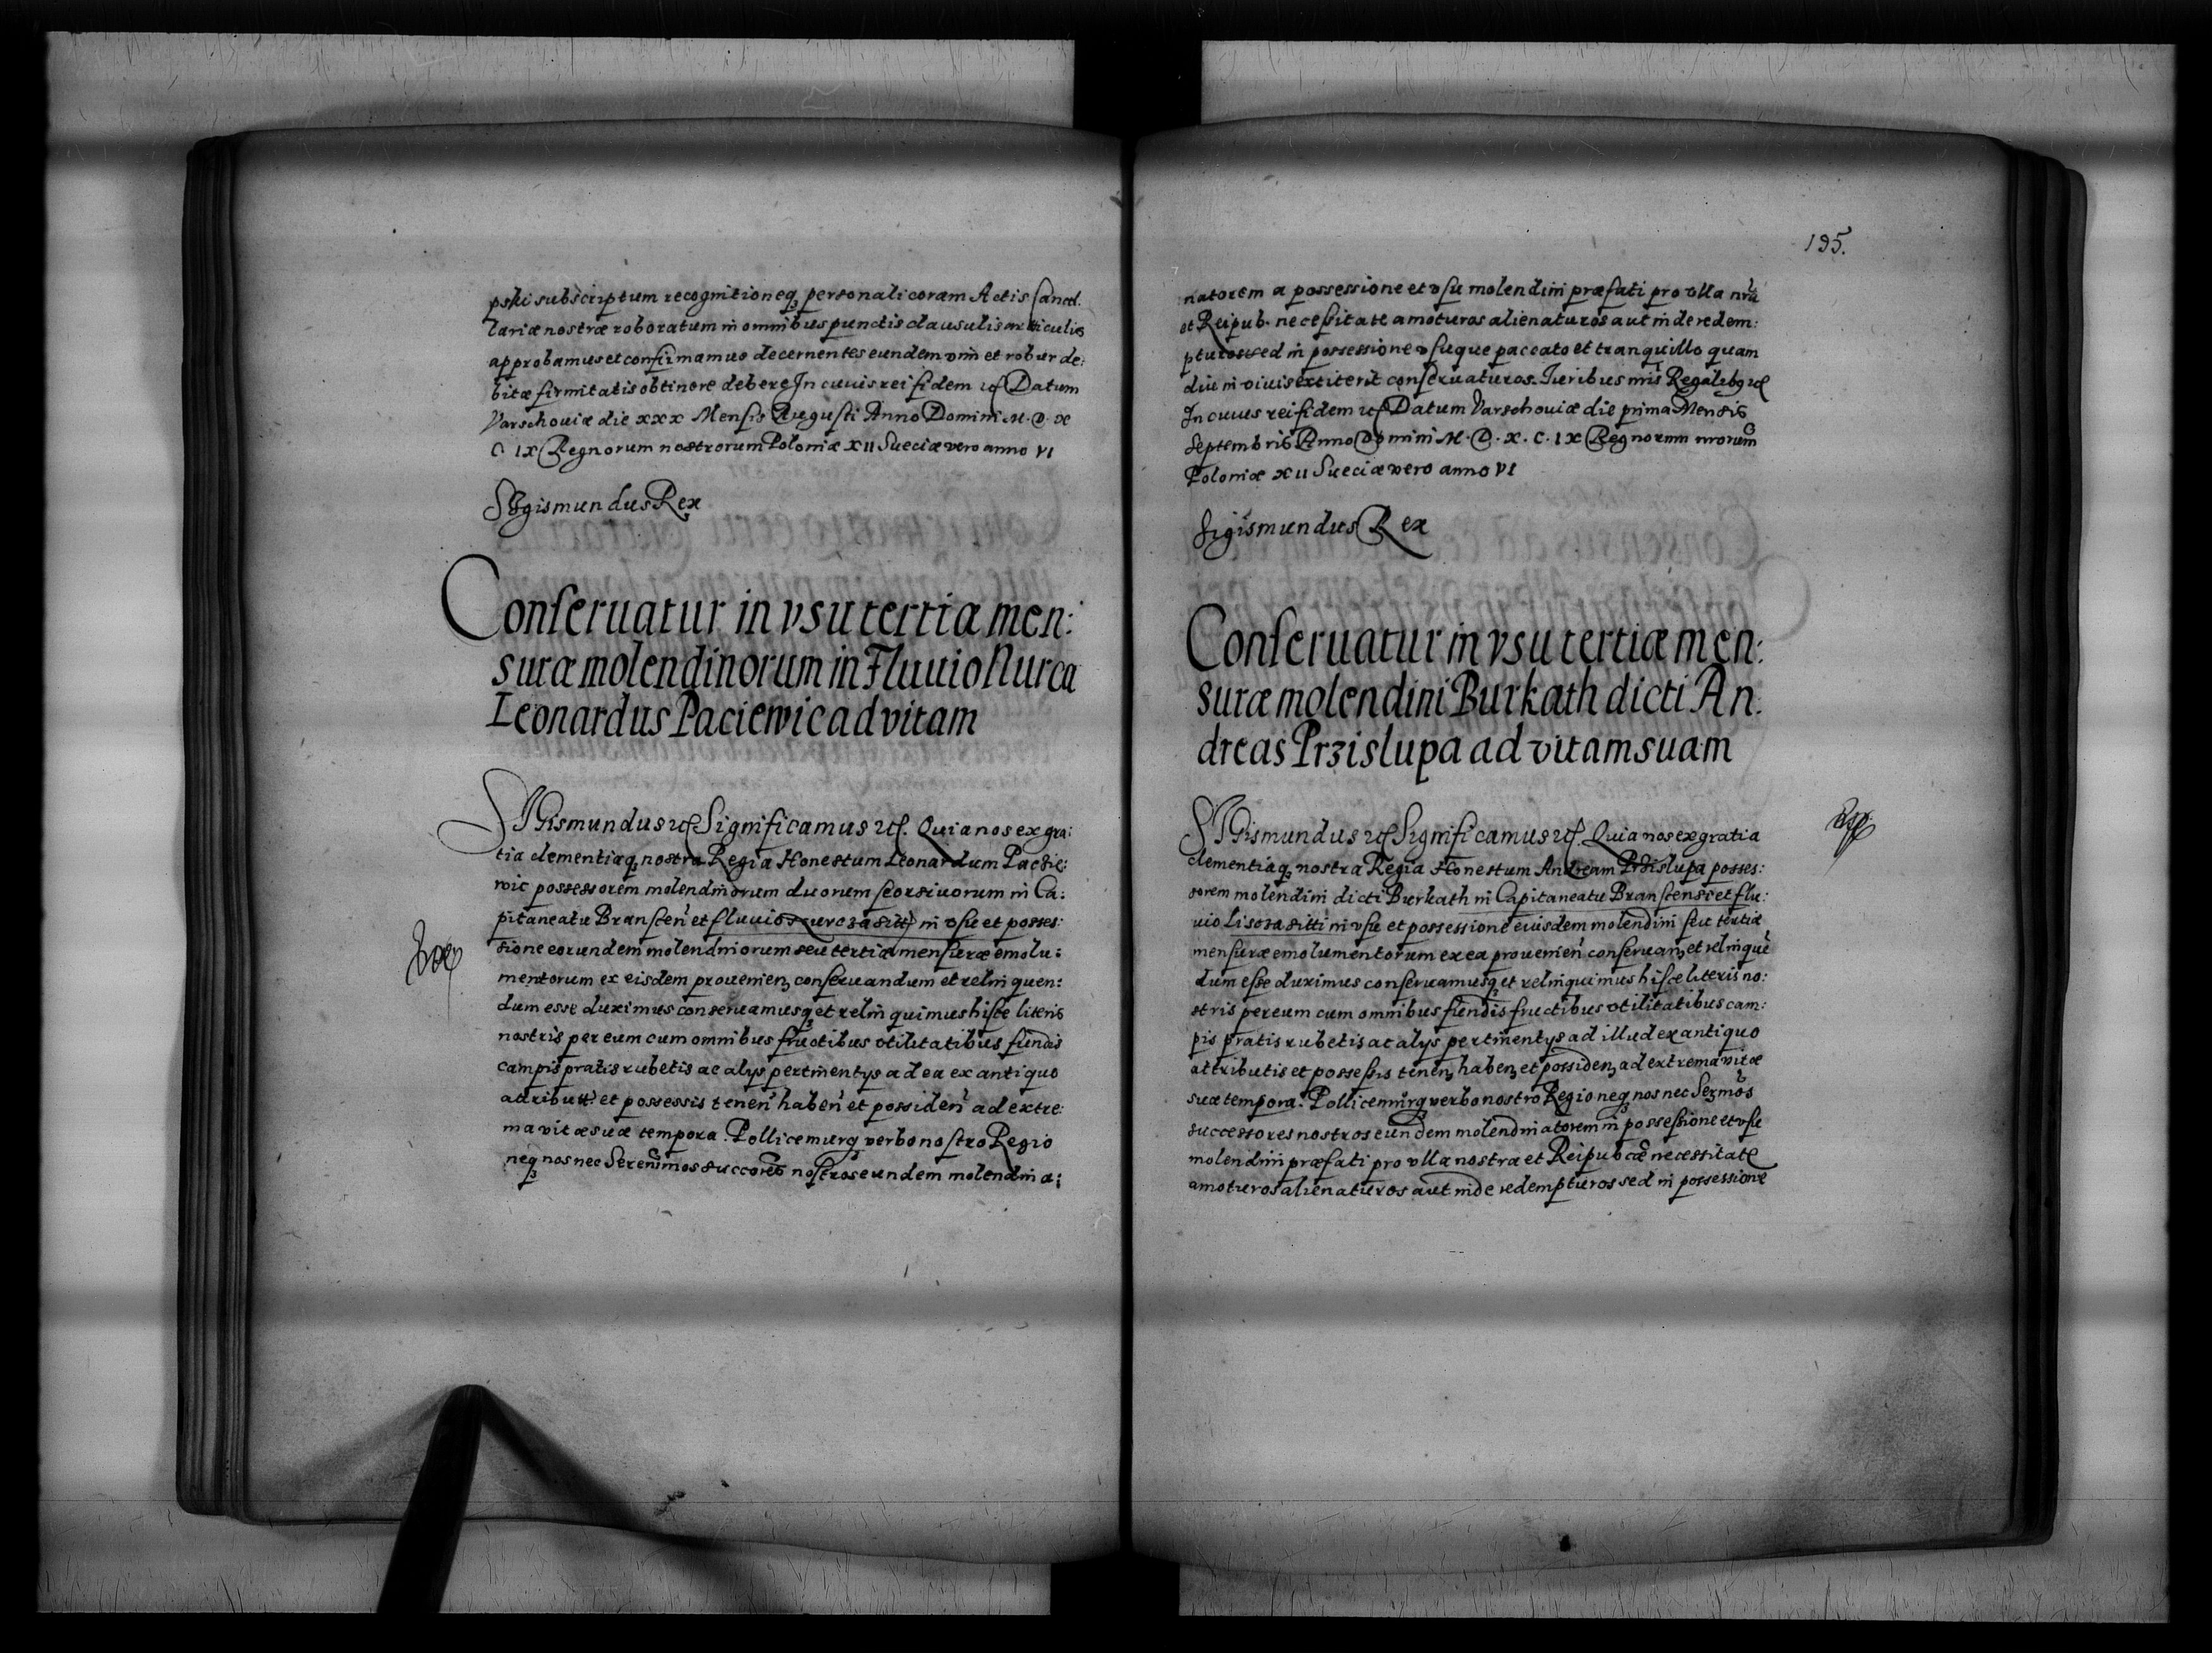 pski subscriptum recognitioneq; personali coram Actis Cancel.
lariæ nostræ roboratum in omnibus punctis clausulis articulis
approbamus et confirmamus decernentes eundem vim et robur de:
bitæ firmitatis obtinere debere In cuius rei fidem etc Datum
Varschouiæ die xxx Mensis Augusti Anno Domini M. D. X
C IX Regnorum nostrorum Poloniæ XII Sueciæ vero anno VI
Sigismundus Rex
Conseruatur in vsu tertiæ men:
suræ molendinorum in Fluuio Nurca
Leonardus Paciewic ad vitam
Sigismundus etc Significamus etc. Quia nos ex gra:
tia clementiaq; nostra Regia Honestum Leonardum Pacie:
wic possessorem molendinorum duorum seorsiuorum in Ca:
pitaneatu Branscen̄ et fluuio Nurcza sitt in vsu et posses:
sione eorundem molendinorum seu tertiæ mensuræ emolu:
mentorum ex eisdem prouenien; conseruandum et relinquen:
dum esse duximus conseruamusq; et relinquimus hisce literis
nostris per eum cum omnibus fructibus vtilitatibus fundis
campis pratis rubetis ac alys pertinentys ad ea ex antiquo
adtibutt: et possessis tenen̄ haben̄ et possiden̄ ad extre:
ma vitæ suæ tempora. Pollicemurq; verbo nostro Regio
neq; nos nec Serenimos succores nostros eundem molendina:
195.
natorem a possessione et vsu molendini præfati pro vlla nr̄a
et Reipub. necessitate amoturos alienaturos aut inde redem:
pturos sed in possessione vsuque paccato et tranquillo quam
diu in viuis extiterit conseruaturos. Iuribus nr̄is Regalibq; etc
In cuius rei fidem etc Datum Varschouiæ die prima Mensis
Septembris Anno Domini M. D. X. C. IX Regnorum nrorum
Poloniæ XII Sueciæ vero anno VI
Sigismundus Rex
Conseruatur in vsu tertiæ men:
suræ molendini Burkath dicti An:
dreas Przislupa ad vitam suam
Sigismundus etc Significamus etc. Quia nos ex gratia
clementiaq; nostra Regia Honestum Andream Przislupa posses:
sorem molendini dicti Burkath in Capitaneatu Branscensi et flu:
uio Lisoza sitti in vsu et possessione eiusdem molendini seu tertiæ
mensuræ emolumentorum ex ea prouenien̄ conseruan; et relinquē
dum esse duximus conseruamusq; et relinquimus hisce literis no:
stris per eum cum omnibus fundis fructibus vtilitatibus cam:
pis pratis rubetis ac alys pertinentys ad illud ex antiquo
attributis et possessis tenen; haben; et possiden; ad extrema vitæ
suæ tempora. Pollicemurq; verbo nostro Regio neq; nos nec Serm̄os
successores nostros eundem molendinatorem in possessione et vsu
molendini præfati pro vlla nostra et Reipubcæ necessitate
amoturos alienaturos aut inde redempturos sed in possessione